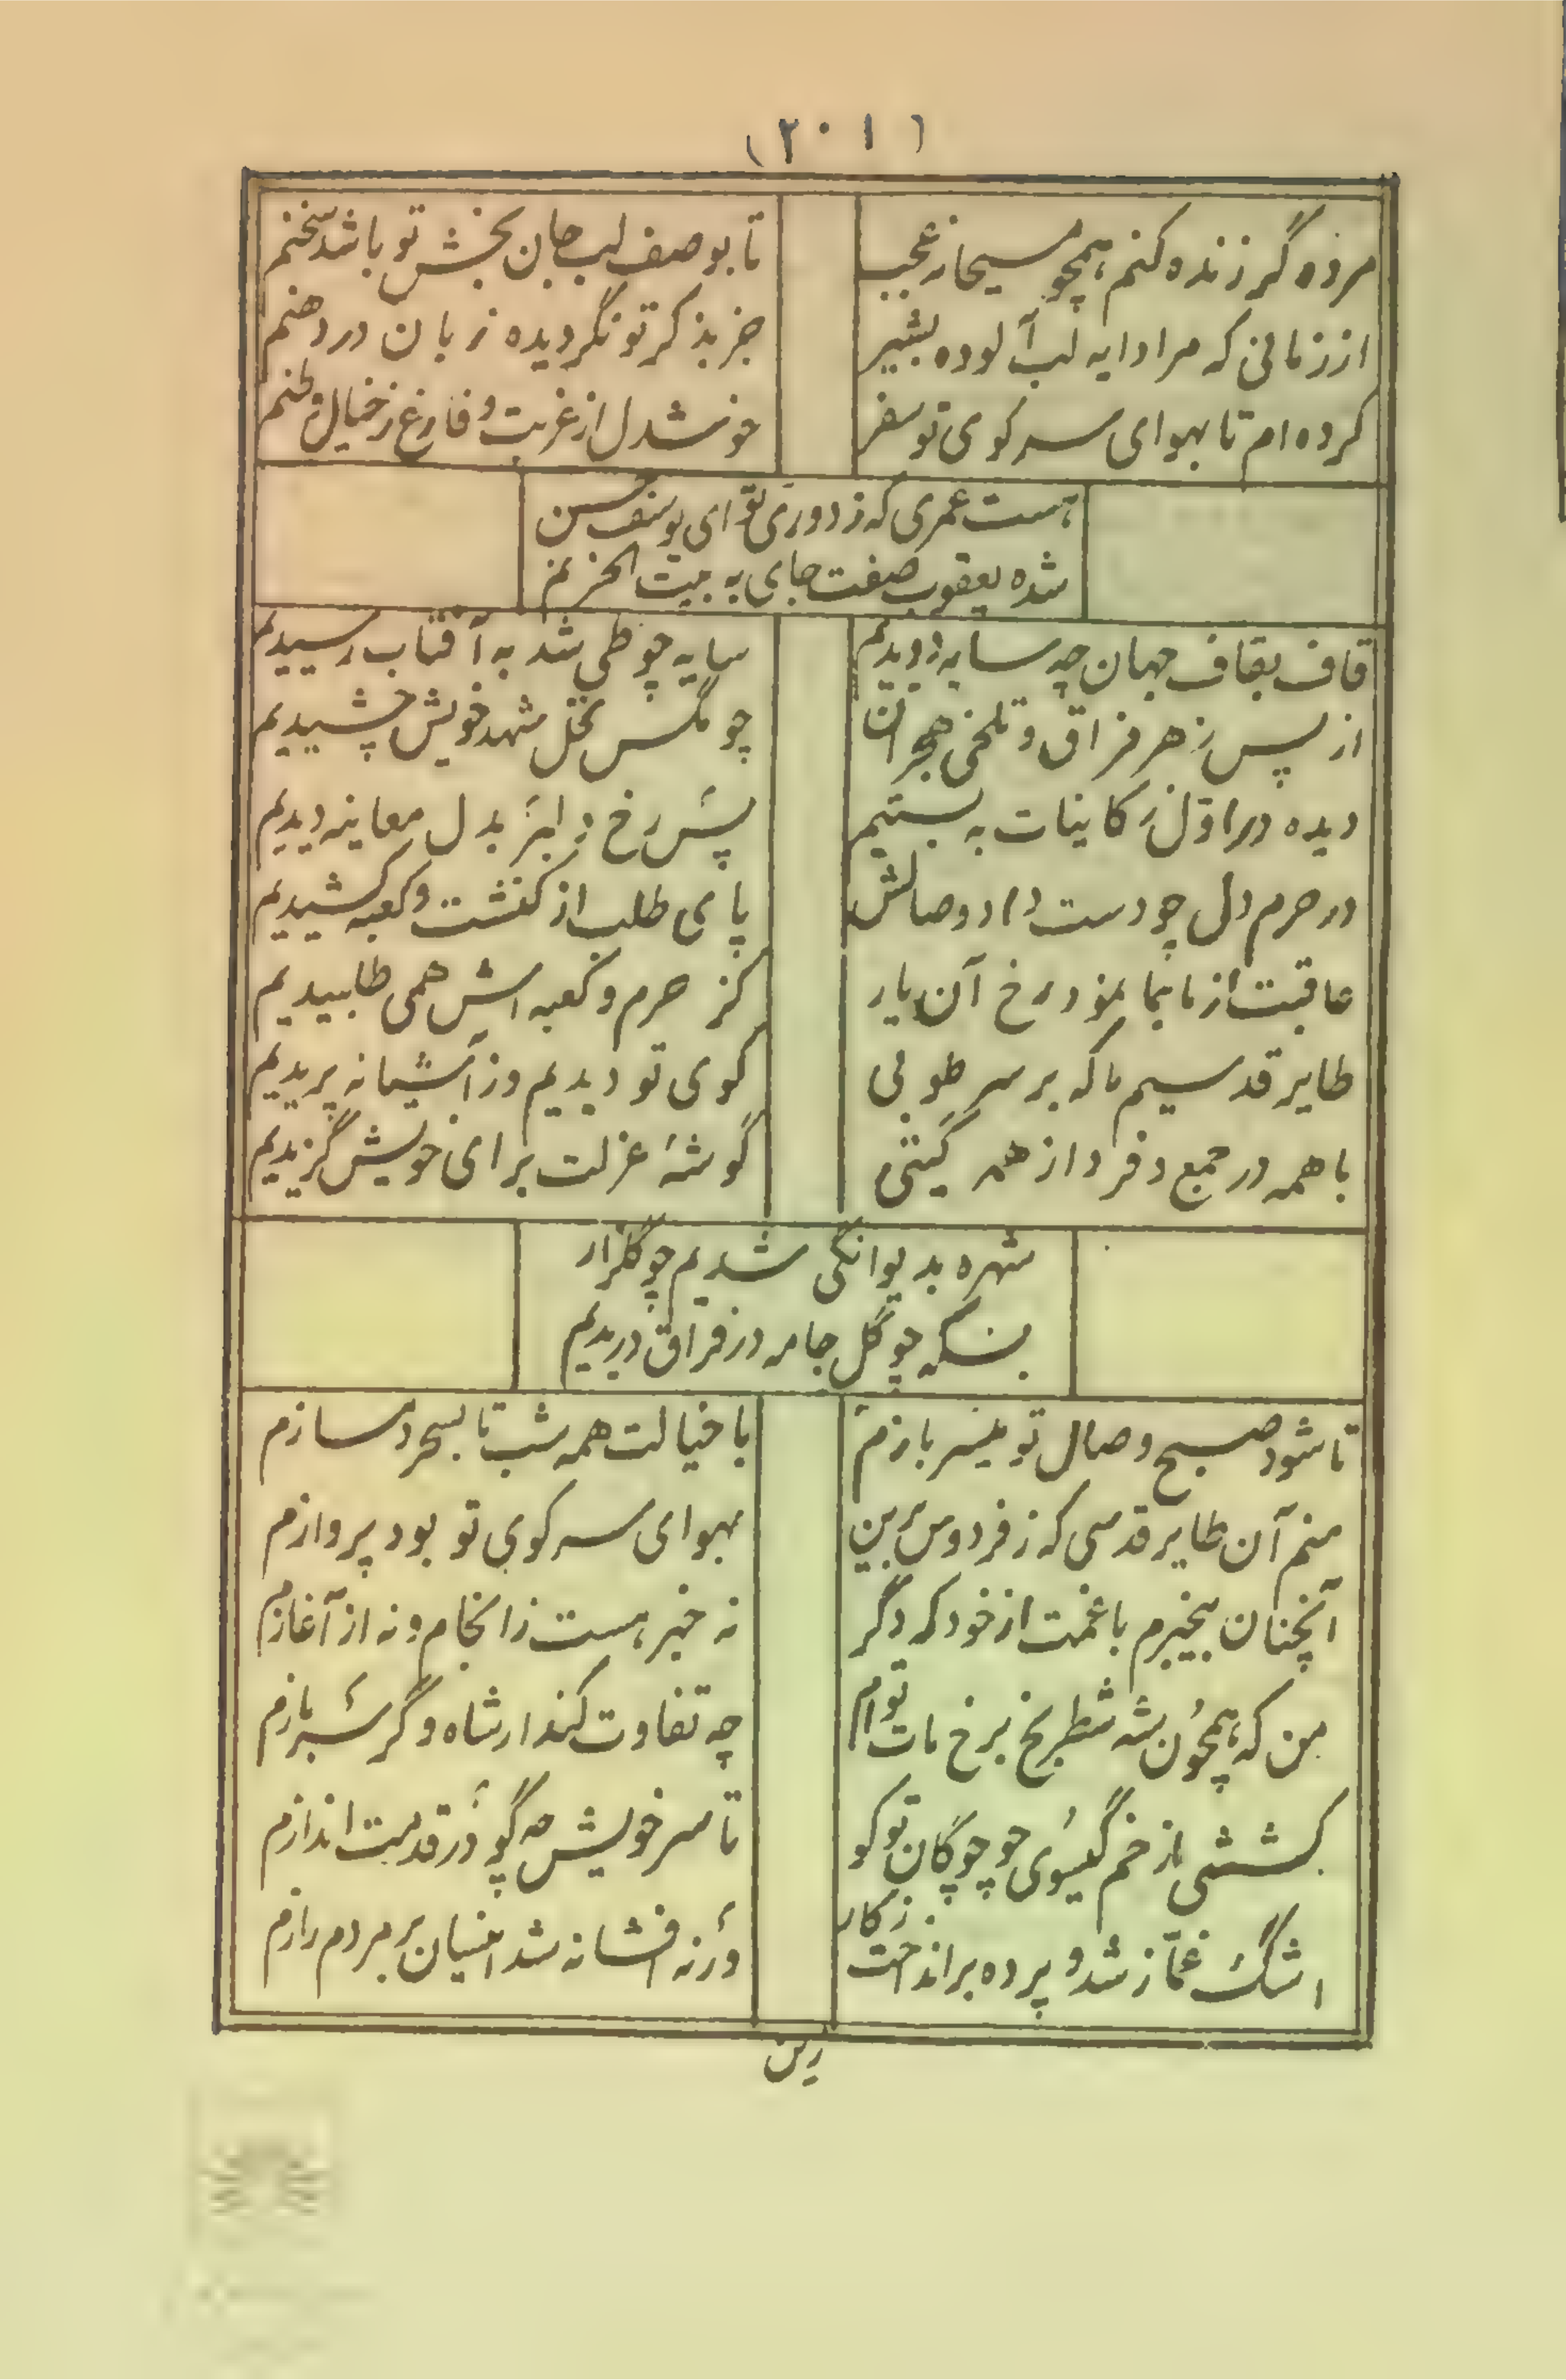 (۲۰۱)
مرده گر زنده کنم همچو مسیحا نه عجب
تا بوصف لب جان بخش تو باشد سخنم
از زمانی که مرا دایه لب آلوده بشیر
جز بذکر تو نگردیده زبان در دهنم
کرده ام تا بهوای سر کوی تو سفر
خوشدل از غربت و فارغ ز خیال وطنم
هست عمری که ز دوری تو ای یوسف حسن
شده یعقوب صفت جای به بیت الحزنم
قاف بقاف جهان چه سایه دویدیم
سایه چو طی شد به آفتاب رسیدیم
از پس زهر فراق و تلخی هجران
چو مگس نحل شهد خویش چشیدیم
دیده در اول ز کاینات به بستیم
پس رخ دلبر بدل معاینه دیدیم
در حرم دل چو دست داد وصالش
پای طلب از کنشت و کعبه کشیدیم
عاقبت از ما بما نمود رخ آن یار
کز حرم و کعبه اش همی طلبیدیم
طایر قدسیم ما که بر سر طوبی
کوی تو دیدیم وز آشیانه پریدیم
با همه در جمع و فرد از همه گیتی
گوشهٔ عزلت برای خویش گزیدیم
شهره بدیوانگی شدیم چو گلزار
بسکه چو گل جامه در فراق دریدیم
تا شود صبح وصال تو میسر بازم
با خیالت همه شب تا بسحر دمسازم
منم آن طایر قدسی که ز فردوس برین
بهوای سر کوی تو بود پروازم
آنچنان بیخبرم با غمت از خود که دگر
نه خبر هست ز انجام و نه از آغازم
من که همچون شه شطرنج برخ مات توام
چه تفاوت کند ار شاه و گر سربازم
کششی از خم گیسوی چو چوگان تو کو
تا سر خویش چه گو در قدمت اندازم
اشگ غماز شد و پرده برانداخت ز کار
ورنه افشا نه شد اینسان بر مردم رازم